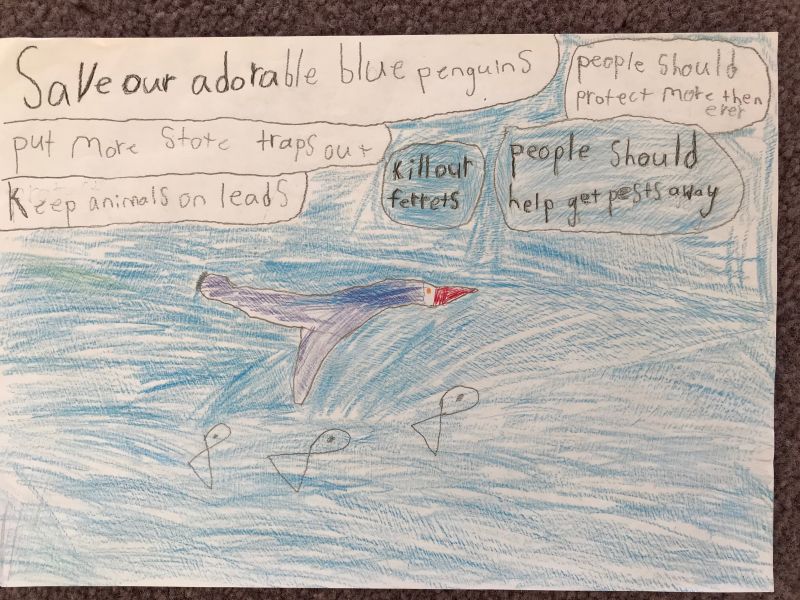 Save our adorable blue penguins
people should
protect more then
ever
put more stote traps out
Kill our
ferrets
people should
help get pests away
Keep animals on leads